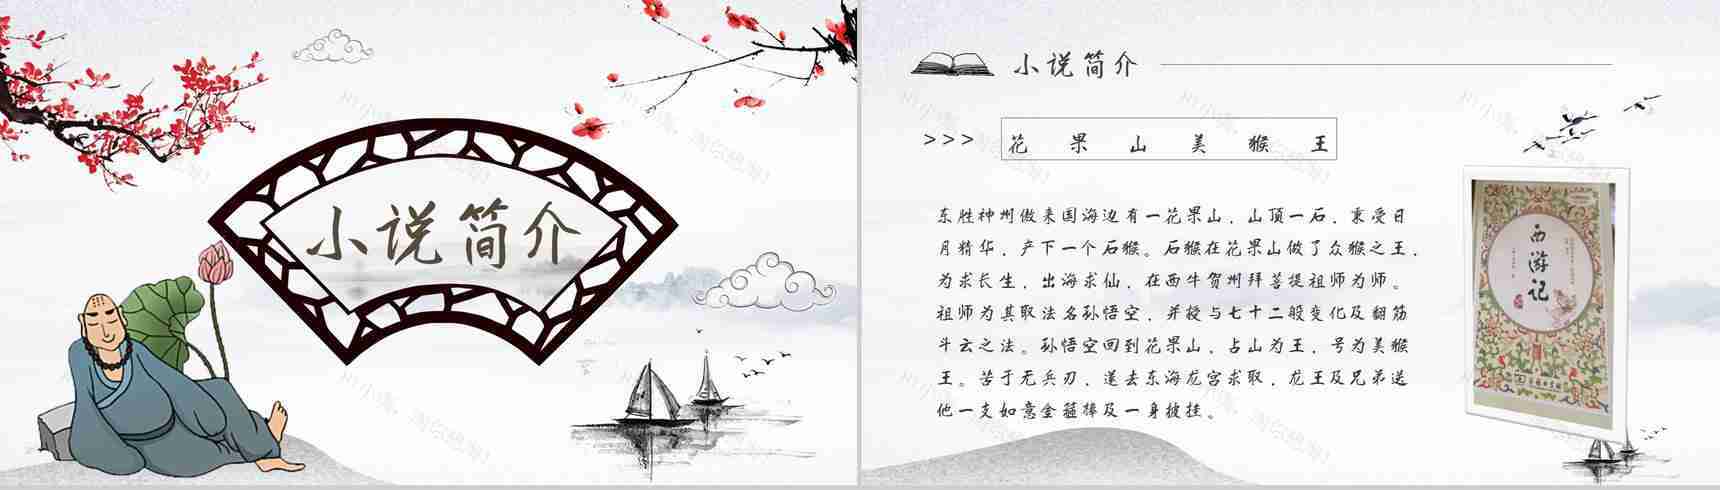 小说简介
小说简介
>>> 花果山美猴王
东胜神州傲来国海边有一花果山，山顶一石，秉受日
月精华，产下一个石猴。石猴在花果山做了众猴之王，
为求长生，出海求仙，在西牛贺州拜菩提祖师为师。
祖师为其取法名孙悟空，并授与七十二般变化及翻筋
斗云之法。孙悟空回到花果山，占山为王，号为美猴
王。苦于无兵刃，遂去东海龙宫求取，龙王及兄弟送
他一支如意金箍棒及一身披挂。
西游记